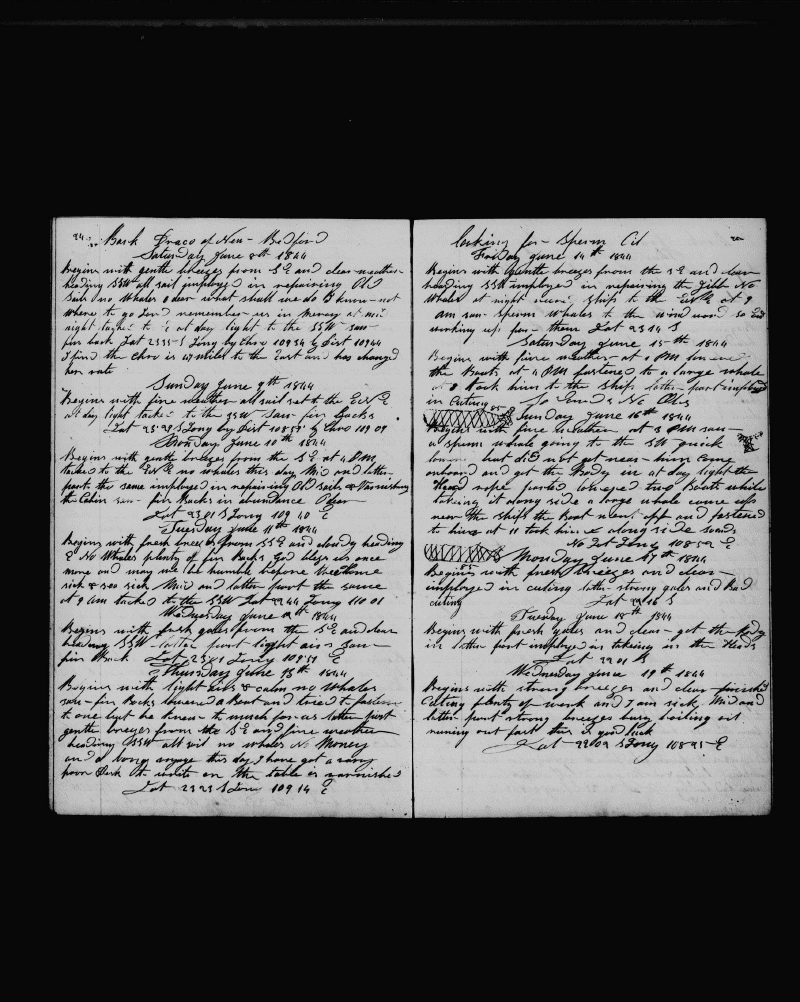 Bark Draco of New Bedford
Saturday June 8th 1844
Begins with gentle breezes from S E and clear weather
heading SSW all sail imployed in repairing Old
Sails no Whales O dear what shall we do I know not
where to go Lord remember us in mercy at mid
night tacked to E at day light to the SSW saw
fin back Lat 23 35 S Long by Chro 109 34 by Dist 109 44
I find the chro is 47 miles to the East and has changed
her rate
Sunday June 9th 1844
Begins with fine weather all sail set to the East
at day light tacked to the SSW saw fin Backs
Lat 23 29 S Long by Dist by Chro 109 09
Monday June 10th 1844
Begins with gentle breezes from the S E at 4 PM
tacked to the no whales this day Mid and latter
part the same imployed in repairing Old Sails & Varnishing
the Cabin saw fin Backs in abundance
Lat 23 01 S Long 109 40 E
Tuesday June 11th 1844
Begins with fresh breezes from SSE and cloudy heading
E No Whales plenty of fin Backs God bless us once
more and may we be humble before thee
sick & sea sick Mid and latter part the same
at 9 am tacked to the SSW Lat 22 44 Long 110 01
Wednesday June 12th 1844
Begins with fresh gales from the S E and clear
heading SSW latter part light airs saw
fin Back Lat 23 01 Long 109 51 E
Thursday June 13th 1844
Begins with light airs & calm no Whales
saw fin Backs lowered a Boat and tried to fasten
to one but he knew to much for us latter part
gentle breezes from the S E and fine weather
heading SSW all sail no whales No Money
and a song anyage this day I have got a very
poor Desk to write on the table is varnished
Lat 23 23 S Long 109 14 E
looking for Sperm Oil
Friday June 14th 1844
Begins with gentle breezes from the S E and clear
heading SSW imployed in repairing the Jibb No
Whales at night ship to the East at 9
am saw Sperm Whales to the windward so End
working up for them Lat 23 14 S
Saturday June 15th 1844
Begins with fine weather at 1 PM lowered
the Boats at 4 PM fastened to a large whale
at 8 took him to the ship latter part imployed
in Cutting So Ends No Obs
Sunday June 16th 1844
Begins with fine weather at 3 PM saw
a sperm whale going to the SW quick
lowered but did not get near him came
onboard and got the Body in at day light the
Head rope parted lowered two Boats while
taking it along side a large whale came up
near the ship the Boat went off and fastened
to him at 11 took him along side
No Lat Long 108 52 E
Monday June 17th 1844
Begins with fresh breezes and clear
imployed in cutting latter strong gales and Bad
cutting Lat 22 16 S
Tuesday June 18th 1844
Begins with fresh gales and clear got the Body
in latter part imployed in takeing in the Heads
Lat 22 01 S
Wednesday June 19th 1844
Begins with strong breezes and clear finished
Cutting plenty of work and I am sick Mid and
latter part strong breezes busy boiling oil
runing out fast this is good luck
Lat 22 09 S Long 108 21 E